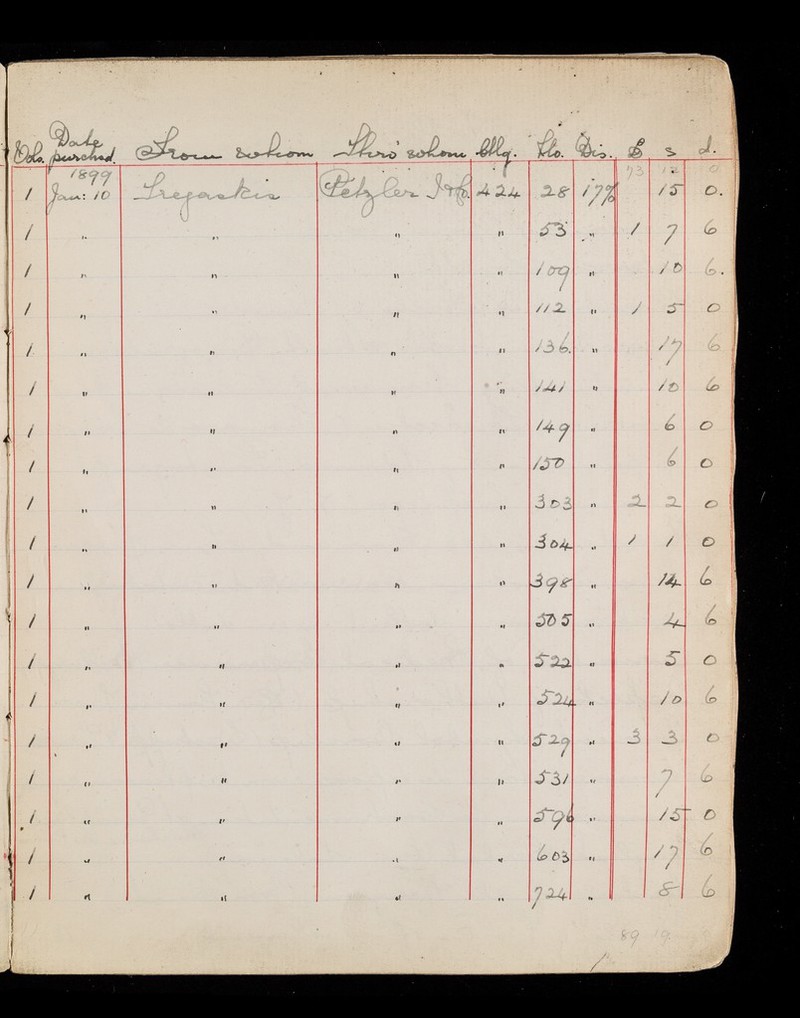 Vols. Date purchsd. From whom Thro' whom Ctlg. No. Dis. £ s d.
1899 73 12 0
1 Jan: 10 Tregaskis Petzler & Co. 424 28 17% 15 0.
1 " " " " 53 " 1 7 6
1 " " " " 109 " 10 6.
1 " " " " 112 " 1 5 0
1 " " " " 136. " 17 6
1 " " " " 141 " 10 6
1 " " " " 149 " 6 0
1 " " " " 150 " 6 0
1 " " " " 303 " 2 2 0
1 " " " " 304 " 1 1 0
1 " " " " 398 " 14 6
1 " " " " 505 " 4 6
1 " " " " 522 " 5 0
1 " " " " 524 " 10 6
1 " " " " 529 " 3 3 0
1 " " " " 531 " 7 6
1 " " " " 596 " 15 0
1 " " " " 603 " 17 6
1 " " " " 724 " 8 6
89 19